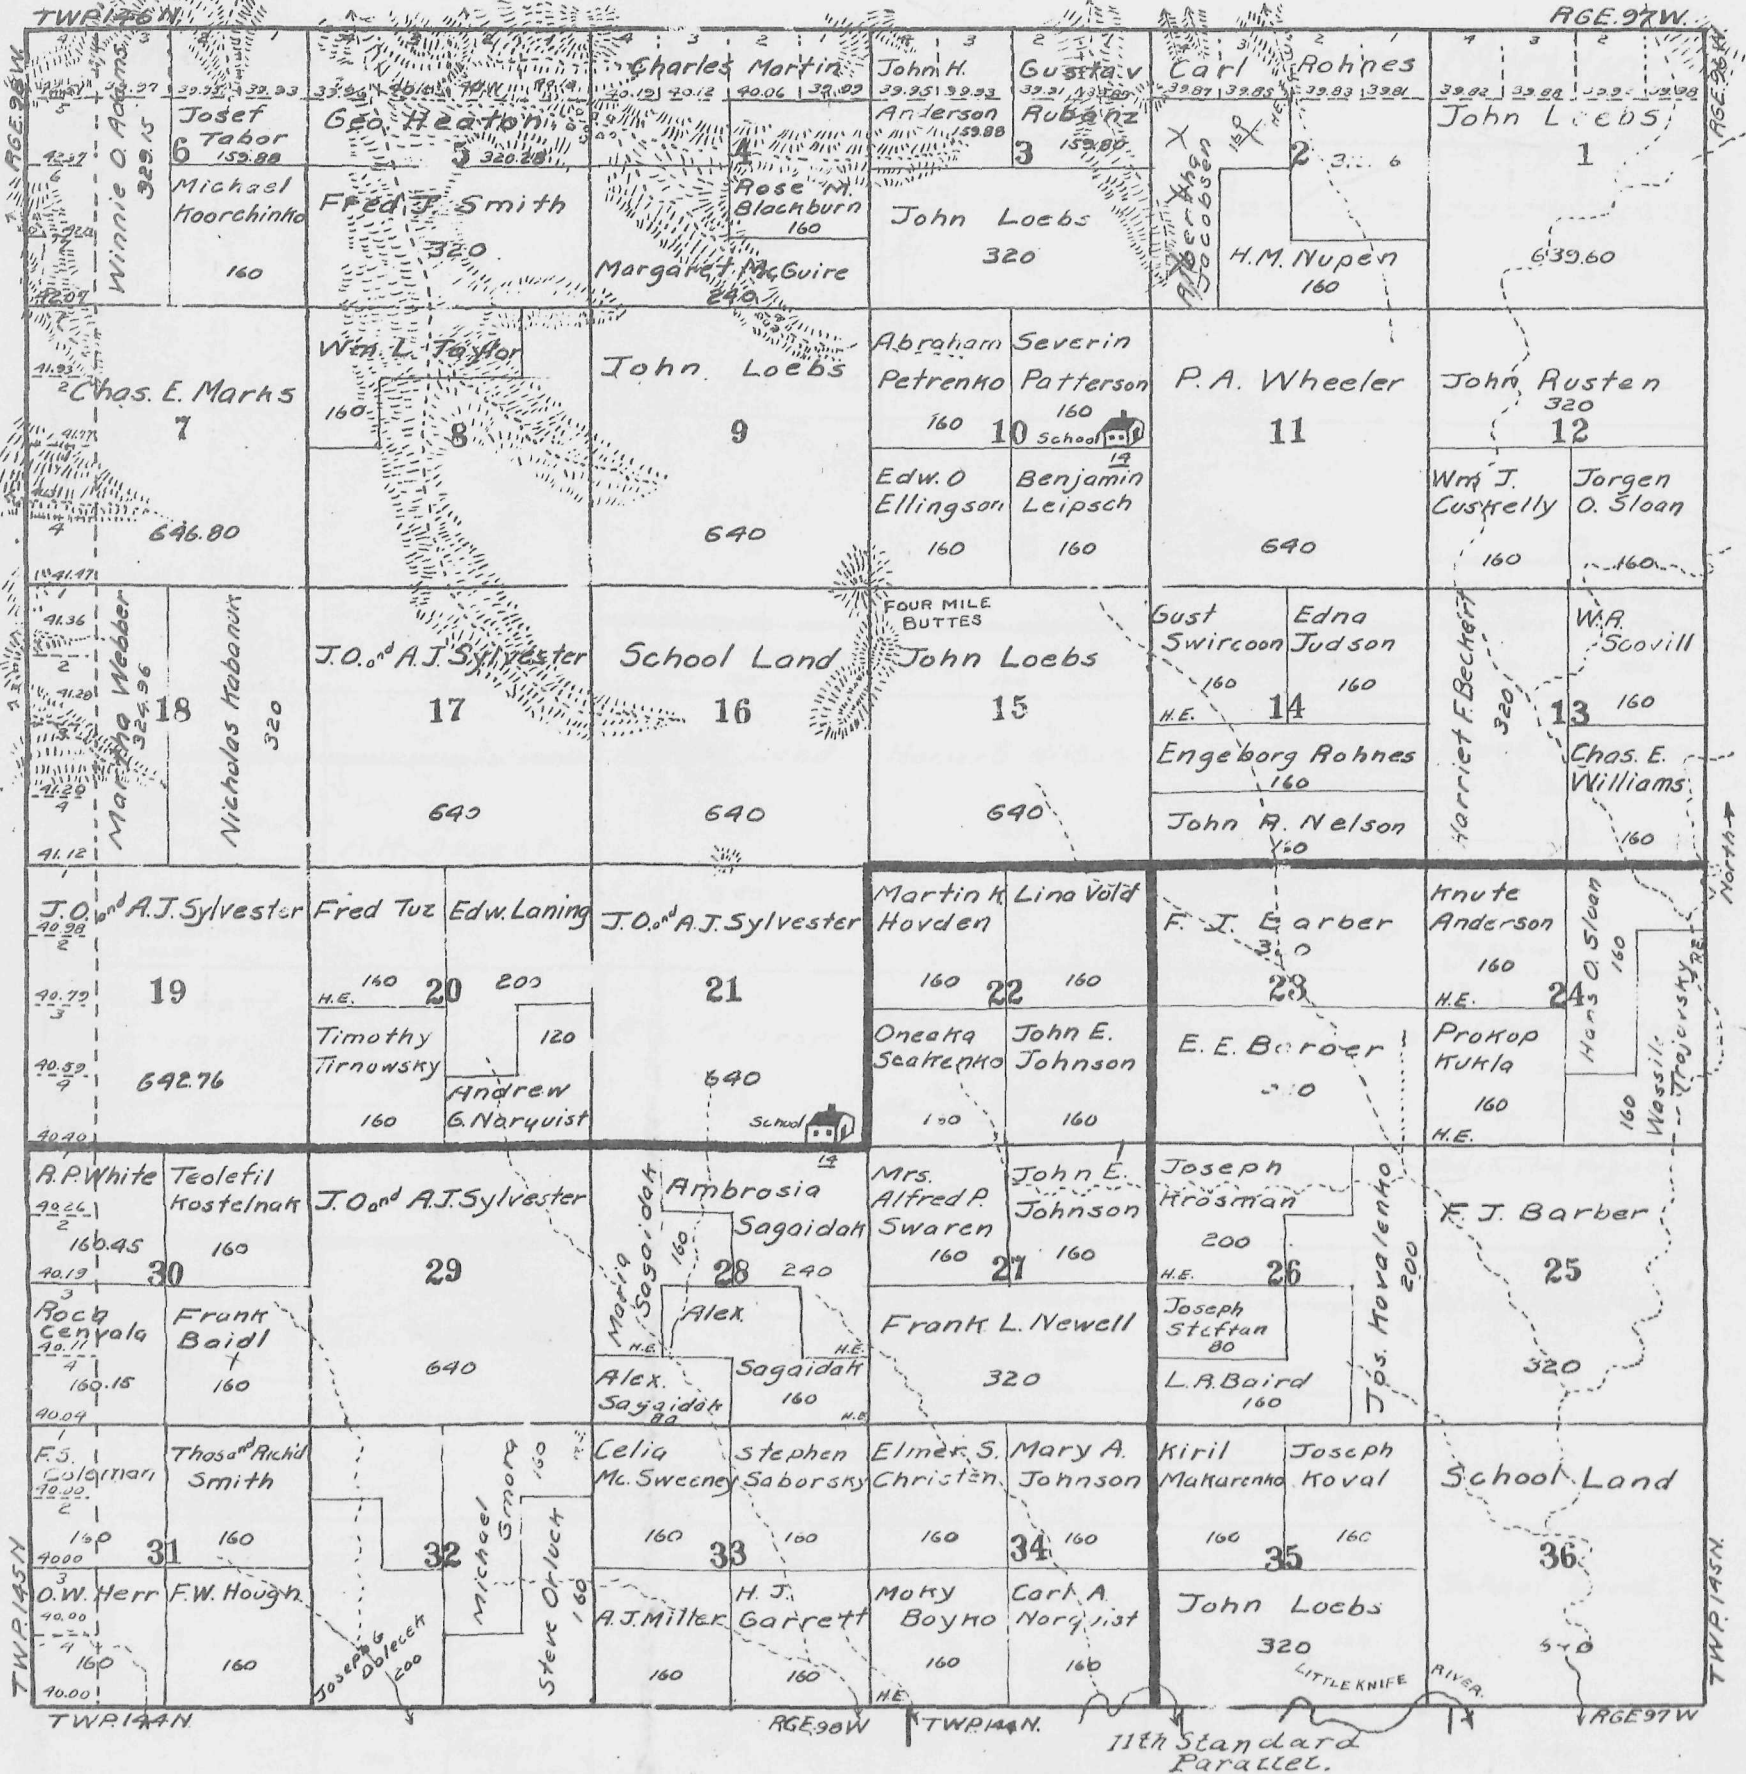 TWP. 146 N.
RGE. 97 W.
RGE. 98 W.
RGE. 96 W.
4 3 2 1
39.97 39.95 39.93
Winnie O. Adams
329.15
Josef
Tabor
159.88
6
Michael
Koorchinko
160
42.07
Geo. Heaton
5 320.28
Fred J. Smith
320
4 3 2 1
Charles Martin
40.19 40.12 40.06 39.99
4
Rose M.
Blackburn
160
Margaret McGuire
240
3
John H.
39.95 39.93
Anderson
159.88
2
Gustav
39.91
Rubanz
159.80
3
John Loebs
320
3 2 1
Carl Rohnes
39.87 39.85 39.83 39.81
2
Albertha
Jacobsen
160
H.M. Nupen
160
4 3 2
39.82 39.88
John Loebs
1
639.60
41.93
2
Chas. E. Marks
7
41.77
4
646.80
41.47
Wm. L. Taylor
160
8
John Loebs
9
640
Abraham
Petrenko
160
Severin
Patterson
160
10 School
14
Edw. O
Ellingson
160
Benjamin
Leipsch
160
P. A. Wheeler
11
640
John Rusten
320
12
Wm J.
Cuskelly
160
Jorgen
O. Sloan
160
41.36
2
41.28
41.20
4
41.12
Martha Webber
324.96
18
Nicholas Kabanuk
320
J.O. and A.J. Sylvester
17
640
School Land
16
640
FOUR MILE
BUTTES
John Loebs
15
640
Gust
Swircoon
160
H.E.
Edna
Judson
160
14
Engeborg Rohnes
160
John A. Nelson
160
Harriet F. Beckert
320
13
W.A.
Scovill
160
Chas. E.
Williams
160
North
J.O. and A.J. Sylvester
40.98
2
19
40.79
3
40.59
4
642.76
40.40
Fred Tuz
160
H.E.
20
Edw. Laning
200
120
Timothy
Tirnowsky
160
Andrew
G. Norquist
J.O. and A.J. Sylvester
21
640
School
14
Martin K
Hovden
160
Lina Vold
160
22
Oneaka
Scakenko
John E.
Johnson
160
F. J. Barber
23
E. E. Barber
Knute
Anderson
160
H.E.
24
Prokop
Kukla
160
H.E.
Hans O. Sloan
160
Wassile
Trojovsky
160
A.P. White
40.26
2
160.45
40.19
Teolefil
Kostelnak
160
30
3
Roca
Cenyala
40.11
4
160.15
40.04
Frank
Baidl
160
J.O. and A.J. Sylvester
29
640
Maria
Sagaidak
160
H.E.
Ambrosia
Sagaidak
28 240
Alex.
H.E.
Sagaidak
160
H.E.
Alex.
Sagaidak
80
Mrs.
Alfred P.
Swaren
160
John E.
Johnson
160
27
Frank L. Newell
320
Joseph
Krosman
200
H.E.
26
Joseph
Steffan
80
L.A. Baird
160
Jos. Kovalenko
200
F. J. Barber
25
320
1
F.S.
Coleman
40.00
2
160
40.00
Thos and Richd
Smith
160
31
3
O.W. Herr
40.00
4
160
40.00
F.W. Hough
160
32
Joseph G
Dolecek
200
Michael
Gmora
160
Steve Orluck
160
Celia
Mc. Sweeney
160
Stephen
Saborsky
160
33
A.J. Miller
160
H. J.
Garrett
160
Elmer S.
Christen
160
Mary A.
Johnson
160
34
Moky
Boyko
160
H.E.
Carl A.
Norquist
160
Kiril
Makarenko
160
Joseph
Koval
160
35
John Loebs
320
School Land
36
LITTLE KNIFE RIVER.
TWP. 145 N
TWP. 145 N.
TWP. 144 N.
RGE 98 W
TWP. 144 N.
RGE 97 W
11th Standard
Parallel.